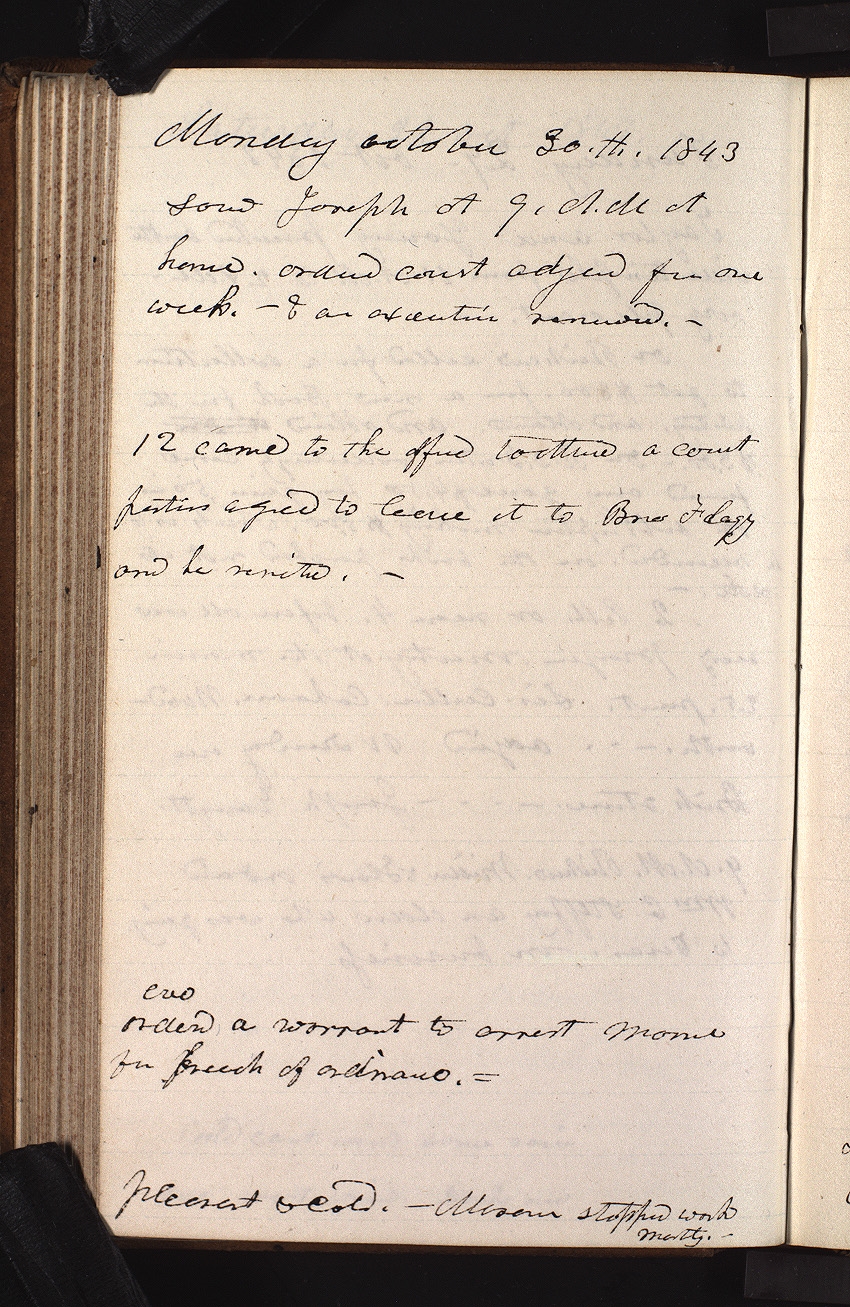 Monday october 30.th. 1843
saw Joseph at 9. A.M at
home. orderd court adjed for one
week. — & an execution renewed. —
12 came to the office to attend a court
parties agreed to leave it to Bro Flagg
and he
eve
orderd a warrant to arrest
for breach of ordinance. =
pleasant & cold. — Masons stopped work
mostly. —